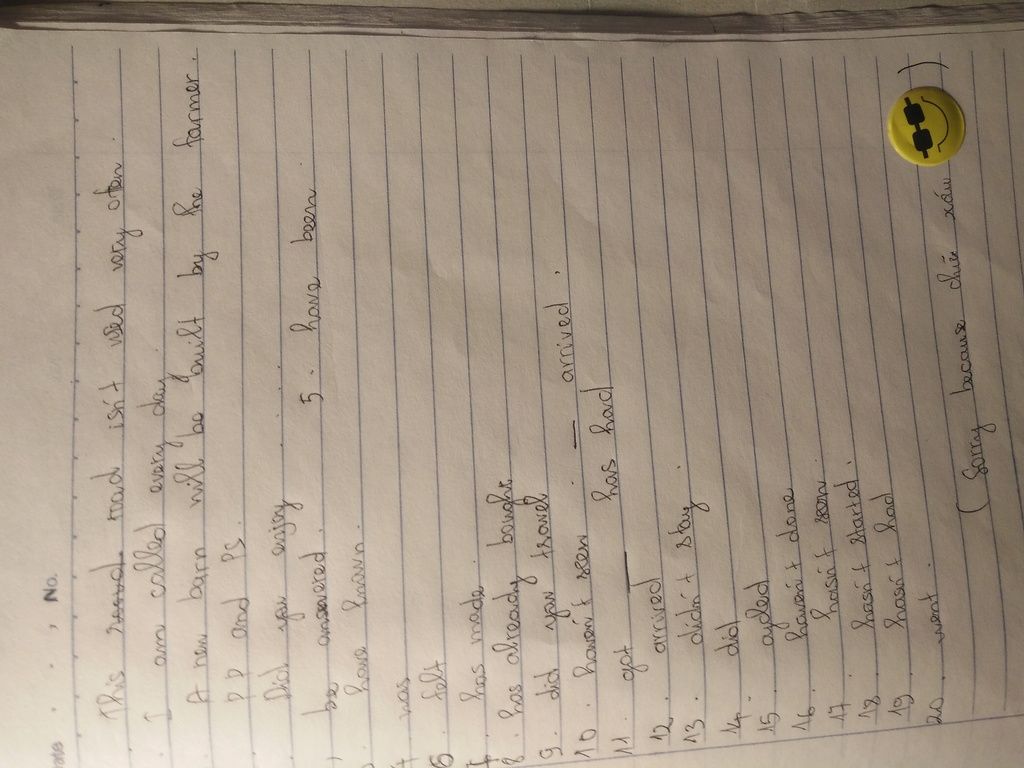 No.
This road isn't used very often.
I am called every day.
A new barn will be built by the farmer.
PP and Ps.
Did you enjoy
be answered. 5. have been
have known.
was
6. felt
has made
8. has already bought
9. did you travel
10. haven't seen - arrived,
11. got - has had
12. arrived
13. didn't stay.
14. did
15. cycled
16. haven't done
17. hasn't seen.
18. hasn't started.
19. hasn't had
20. went.
(Sorry because chữ xấu )